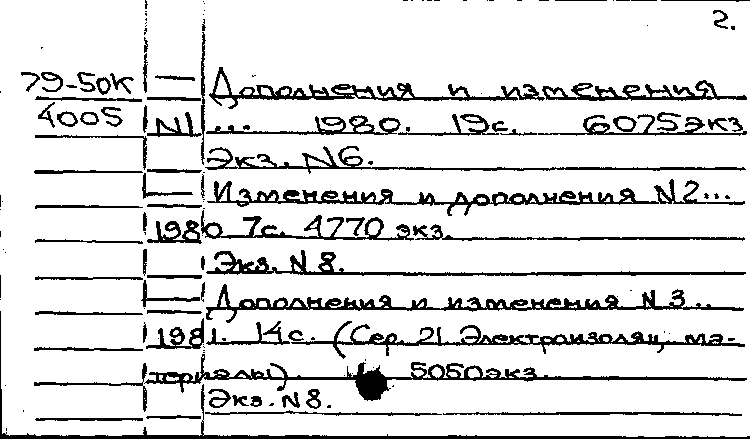 2.
79-50к — Дополнения и изменения
4005 N1 ... 1980. 19с. 6075экз
Экз. N6.
— Изменения и дополнения N2...
1980 7с. 4770 экз.
Экз. N 8.
— Дополнения и изменения N 3..
1981. 14с. (Сер. 21 Электроизоляц, ма-
териалы). 5050экз.
Экз. N8.